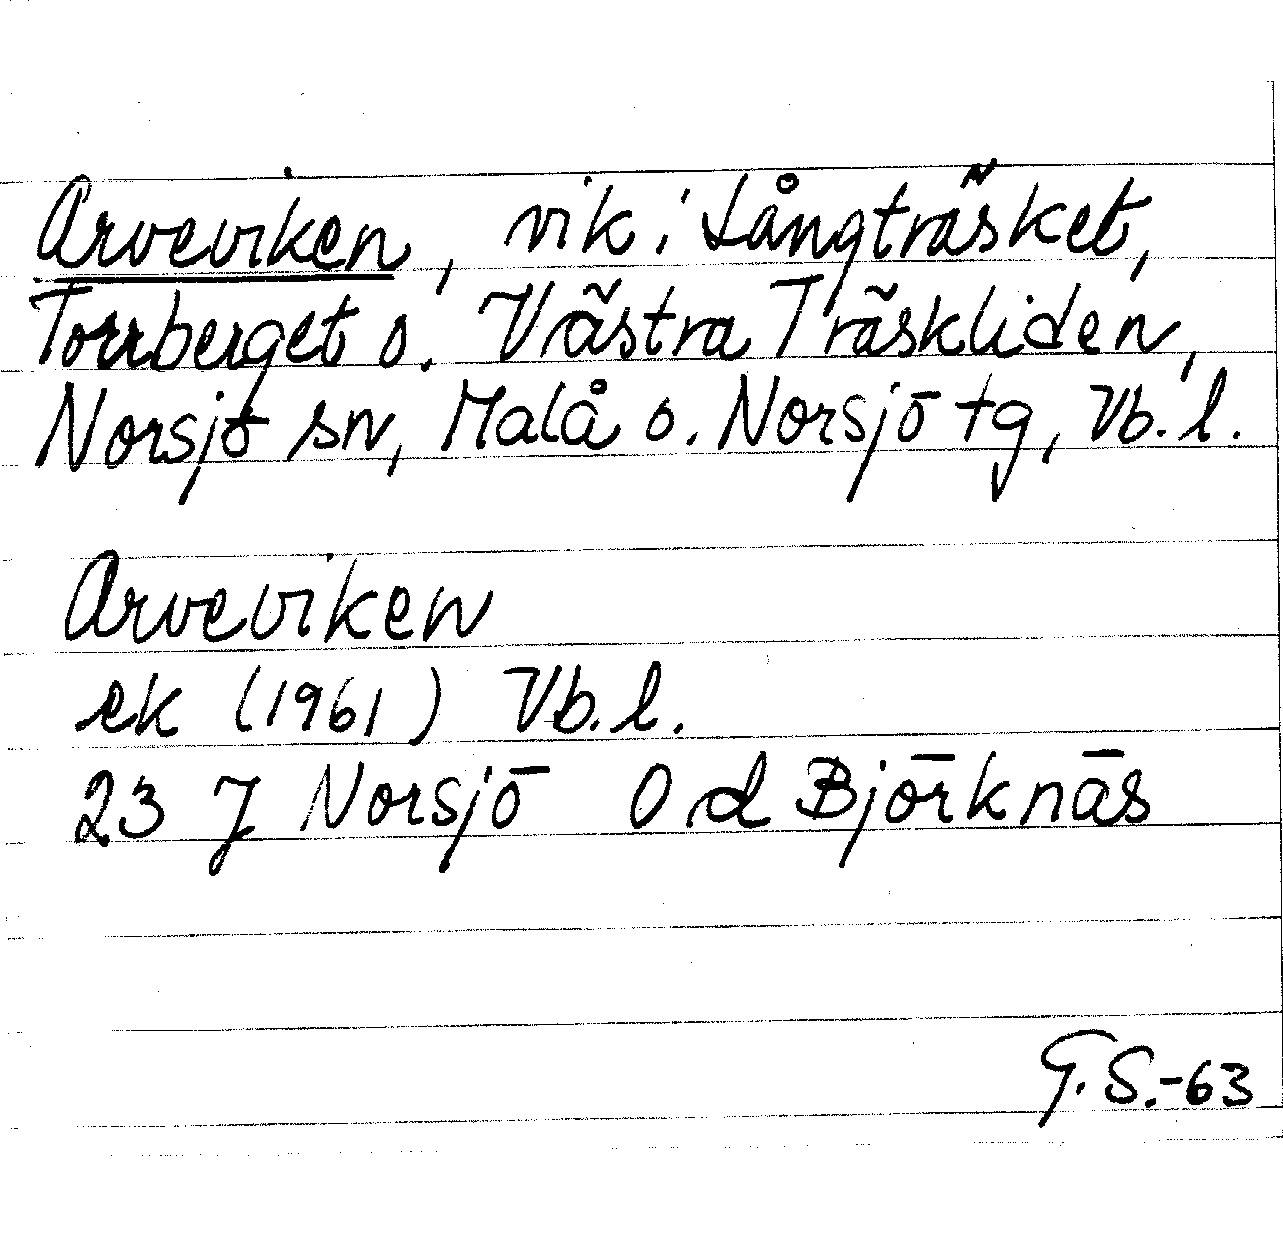 Arveviken, vik i Långträsket,
Torrberget o. Västra Träskliden,
Norsjö sn, Malå o. Norsjö tg, Vb. l.
Arveviken
ek (1961) Vb. l.
23 J Norsjö 0 d Björknäs
G. S.-63